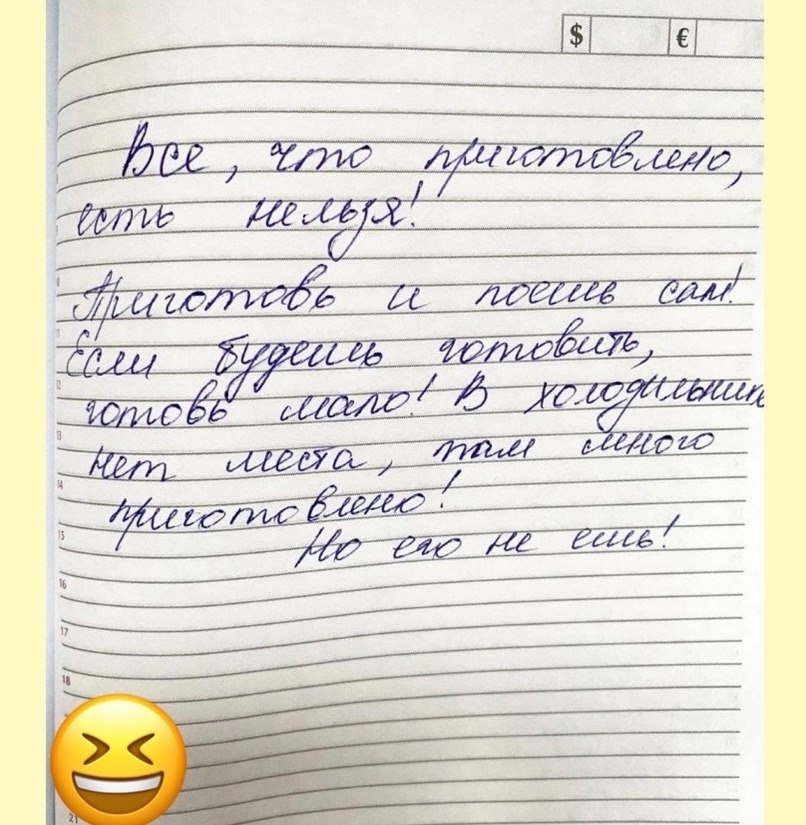 $ €
Все, что приготовлено,
есть нельзя!
Приготовь и поешь сам!
Если будешь готовить,
готовь мало! В холодильнике
нет места, там много
приготовлено!
Но его не ешь!
14
15
16
17
18
21